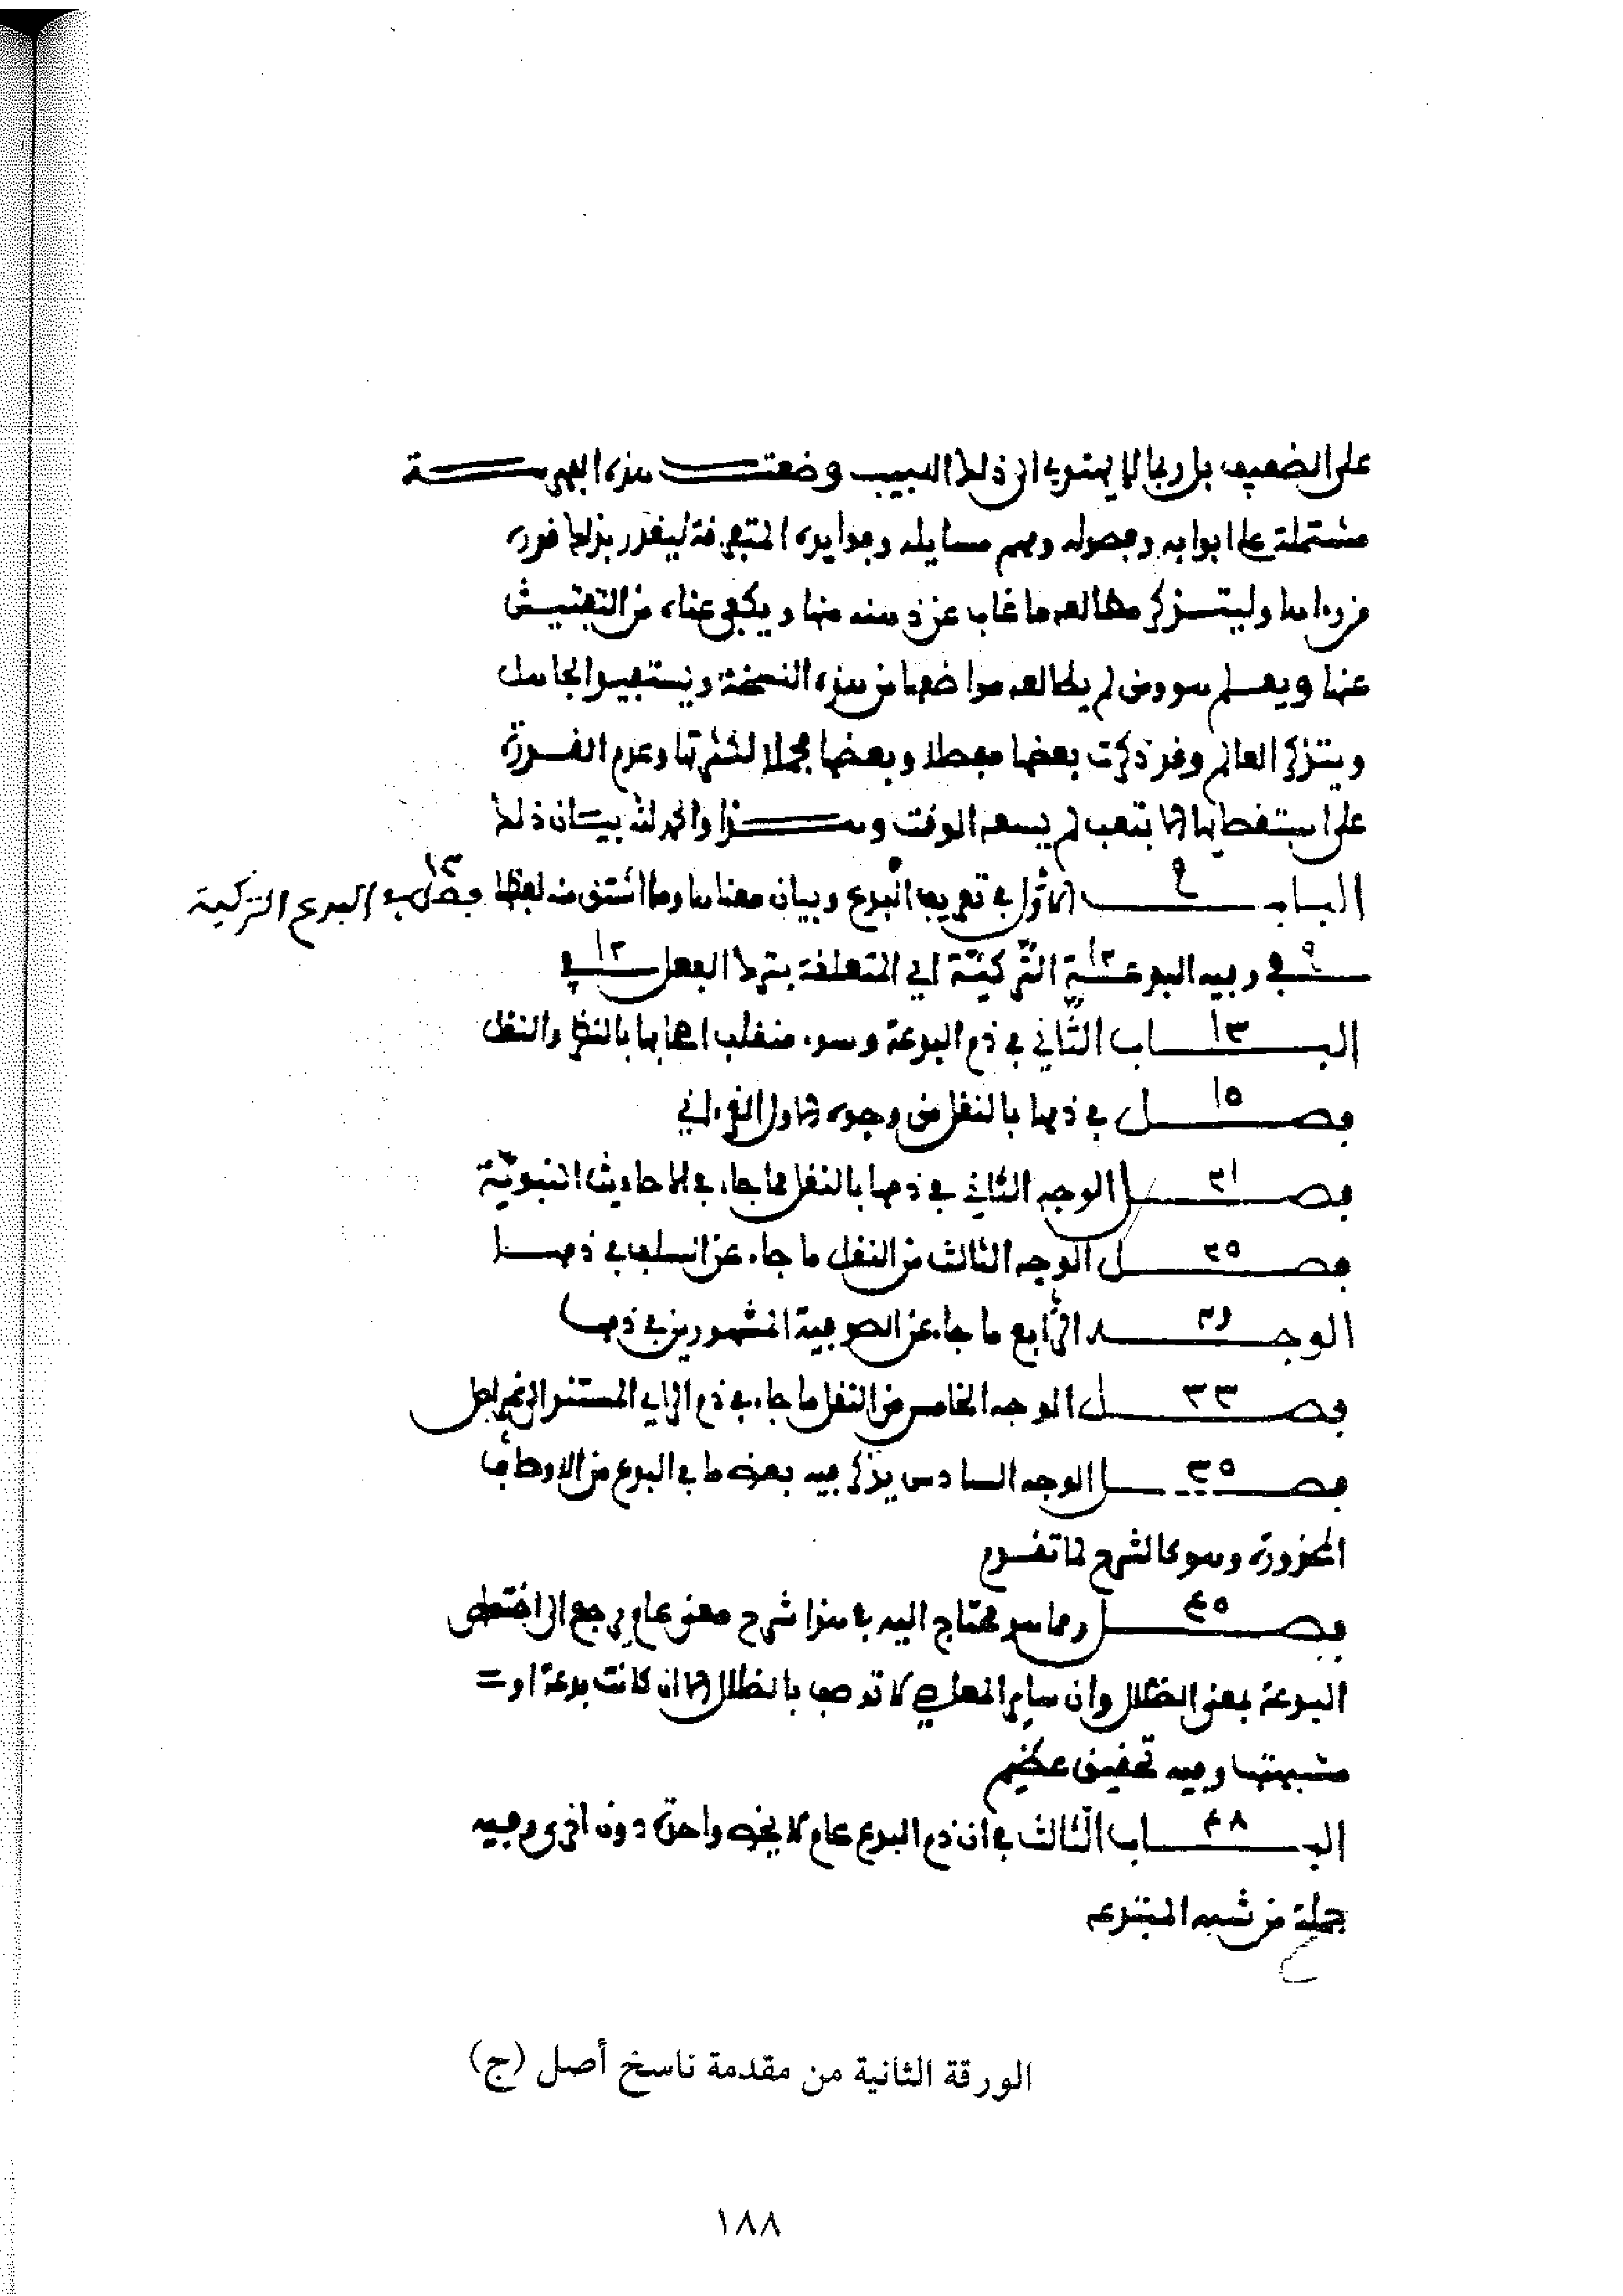 على الضعيف بل ربما لا يهتدي الى ذلك اللبيب وضعت هذه الفهرسة
مشتملة على ابوابه وفصوله ومهم مسايله وفوايده المتفرقة ليقدر بذلك قدره
من رءاها وليتذكر مطالعه ما غاب عن ذهنه منها ويكفى عناء من التفتيش
عنها ويعلم هو ومن لم يطالعه مواضعها من هذه النسخة ويستفيد الجاهل
ويتذكر العالم وقد ذكرت بعضها مفصلا وبعضها مجملا لكثرتها وعدم القدرة
على استقصايها الا بتعب لم يسعه الوقت وهذا والحمد لله بيان ذلك
البابـ ٩ الاول في تعريف البدع وبيان معناها وما اشتق منه لفظها ١٣ فصل في البدع التركية
٩ في وفيه البدعة ١٢ التركيّة اي المتعلقة بترك الفعل ١٢ في
البـ ١٣ ـاب الثّاني في ذم البدعة وسوء منقلب اصحابها بالنظر والنقل
فصـ ١٥ ـل في ذمها بالنقل من وجوه الاول القرءاني
فصـ ٢١ ـل الوجه الثاني في ذمها بالنقل مما جاء في الاحاديث النبويّة
فصـ ٢٥ ـل الوجه الثالث من النقل ما جاء عن السلف في ذمها
الوجـ ـه الرّابع ما جاء عن الصوفية المشهورين في ذمها
فصـ ٣٣ ـل الوجه الخامس من النقل ما جاء في ذم الراي المستند الى غير اصل
فصـ ٣٥ ـل الوجه السادس يذكر فيه بعض ما في البدع من الاوصاف
المحذورة وهو كالشرح لما تقدم
فصـ ٤٥ ـل ومما هو محتاج اليه في هذا شرح معنى عام يرجع الى اختصاص
البدعة بمعنى الضلال وان ساير المعاصي لا توصف بالضلال الا ان كانت بدعة او =
مشبهتها وفيه تحقيق عظيم
البـ ٤٨ ـاب الثّالث في ان ذم البدع عام لا يخص واحدة دون اخرى وفيه
جملة من شبه المبتدعه
الورقة الثانية من مقدمة ناسخ أصل (ج)
١٨٨